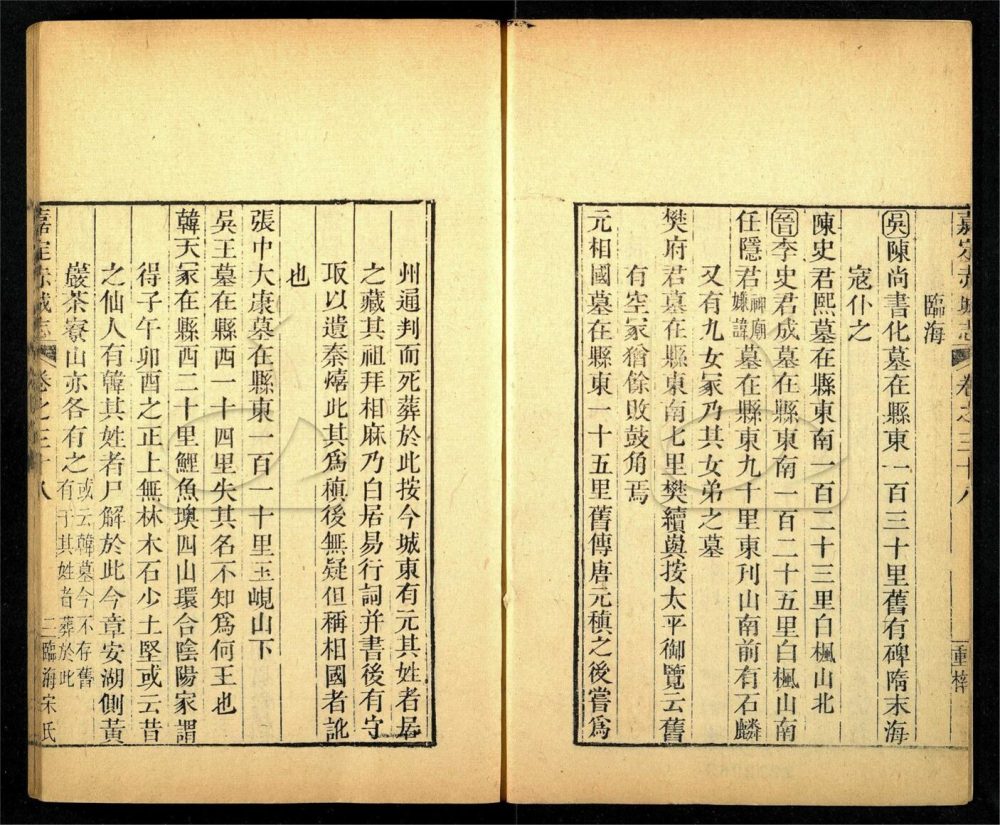 嘉定赤城志 卷之三十八 重梓
臨海
吳陳尚書化墓在縣東一百三十里舊有碑隋末海
寇仆之
陳史君熙墓在縣東南一百二十三里白楓山北
晉李史君成墓在縣東南一百二十五里白楓山南
任隱君神廟嫌諱墓在縣東九十里東刊山南前有石麟
又有九女冢乃其女弟之墓
樊府君墓在縣東南七里樊續輿按太平御覽云舊
有空冢猶餘敗鼓角焉
元相國墓在縣東一十五里舊傳唐元稹之後嘗爲
州通判而死葬於此按今城東有元其姓者居
之藏其祖拜相麻乃白居易行詞并書後有守
取以遺秦熺此其爲稹後無疑但稱相國者訛
也
張中大康墓在縣東一百一十里玉峴山下
吳王墓在縣西一十四里失其名不知爲何王也
韓天冢在縣西二十里鯉魚墺四山環合陰陽家謂
得子午卯酉之正上無林木石少土堅或云昔
之仙人有韓其姓者尸解於此今章安湖側黃
巖茶寮山亦各有之或云韓墓今不存舊有于其姓者葬於此
嘉定赤城志 卷之三十八 二臨海宋氏